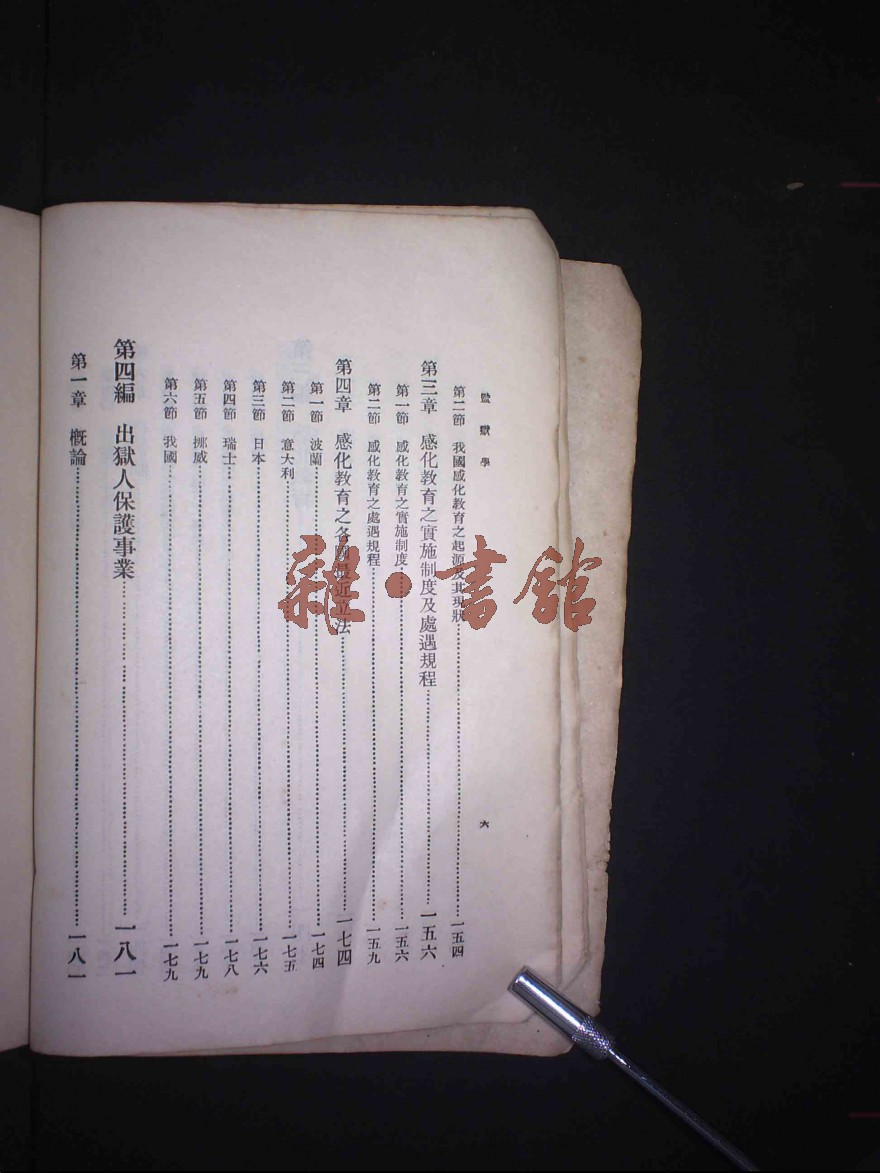 監獄學
六
第二節 我國感化教育之起源及其現狀……一五四
第三章 感化教育之實施制度及處遇規程……一五六
第一節 感化教育之實施制度……一五六
第二節 感化教育之處遇規程……一五九
第四章 感化教育之各國最近立法……一七四
第一節 波蘭……一七四
第二節 意大利……一七五
第三節 日本……一七六
第四節 瑞士……一七八
第五節 挪威……一七九
第六節 我國……一七九
第四編 出獄人保護事業……一八一
第一章 概論……一八一
雜·書館